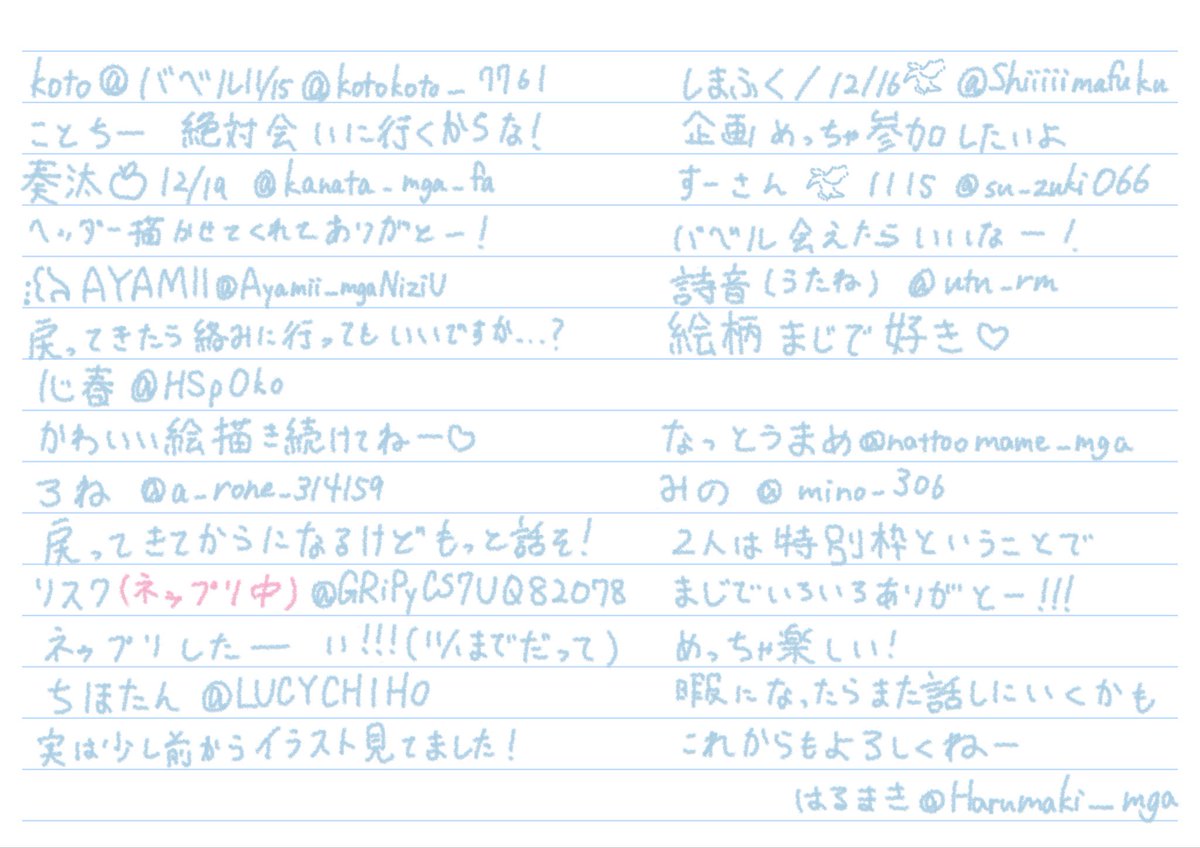 koto@バベル11/15 @kotokoto_7761
ことちー 絶対会いに行くからな!
奏汰🍎12/19 @kanata_mga_fa
ヘッダー描かせてくれてありがとー!
AYAMII@Ayamii_mgaNiziU
戻ってきたら絡みに行ってもいいですか...?
心春 @HSpOko
かわいい絵描き続けてねー♡
ろね @a_rone_314159
戻ってきてからになるけどもっと話そ!
リスク(ネップリ中) @GRiPyCS7UQ82078
ネップリしたーい!!!(11/1までだって)
ちほたん @LUCYCHIHO
実は少し前からイラスト見てました!
しまふく/12/16🕊 @Shiiiiimafuku
企画めっちゃ参加したいよ
すーさん 🕊 1115 @su_zuki066
バベル会えたらいいなー!
詩音(うたね) @utn_rm
絵柄まじで好き♡
なっとうまめ@nattoomame_mga
みの @mino_306
2人は特別枠ということで
まじでいろいろありがとー!!!
めっちゃ楽しい!
暇になったらまた話しにいくかも
これからもよろしくねー
はるまき@Harumaki_mga